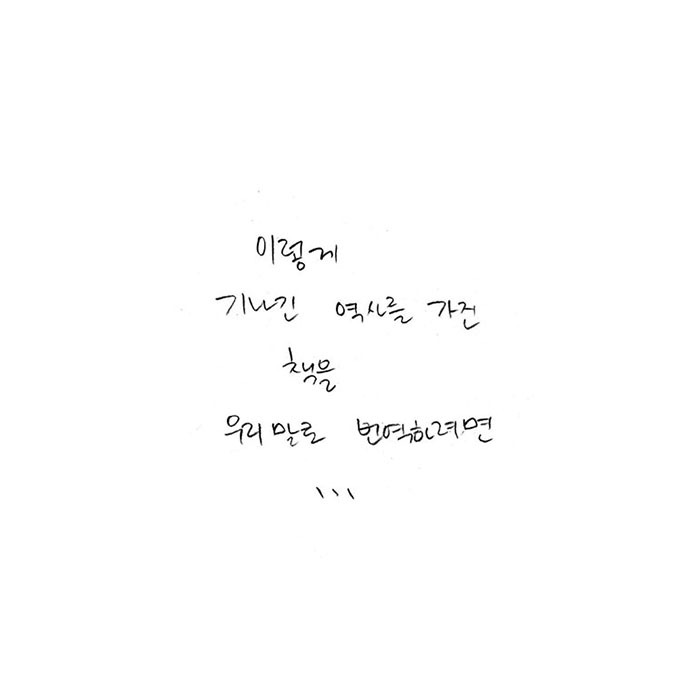 이렇게
기나긴 역사를 가진
책을
우리말로 번역하려면
...